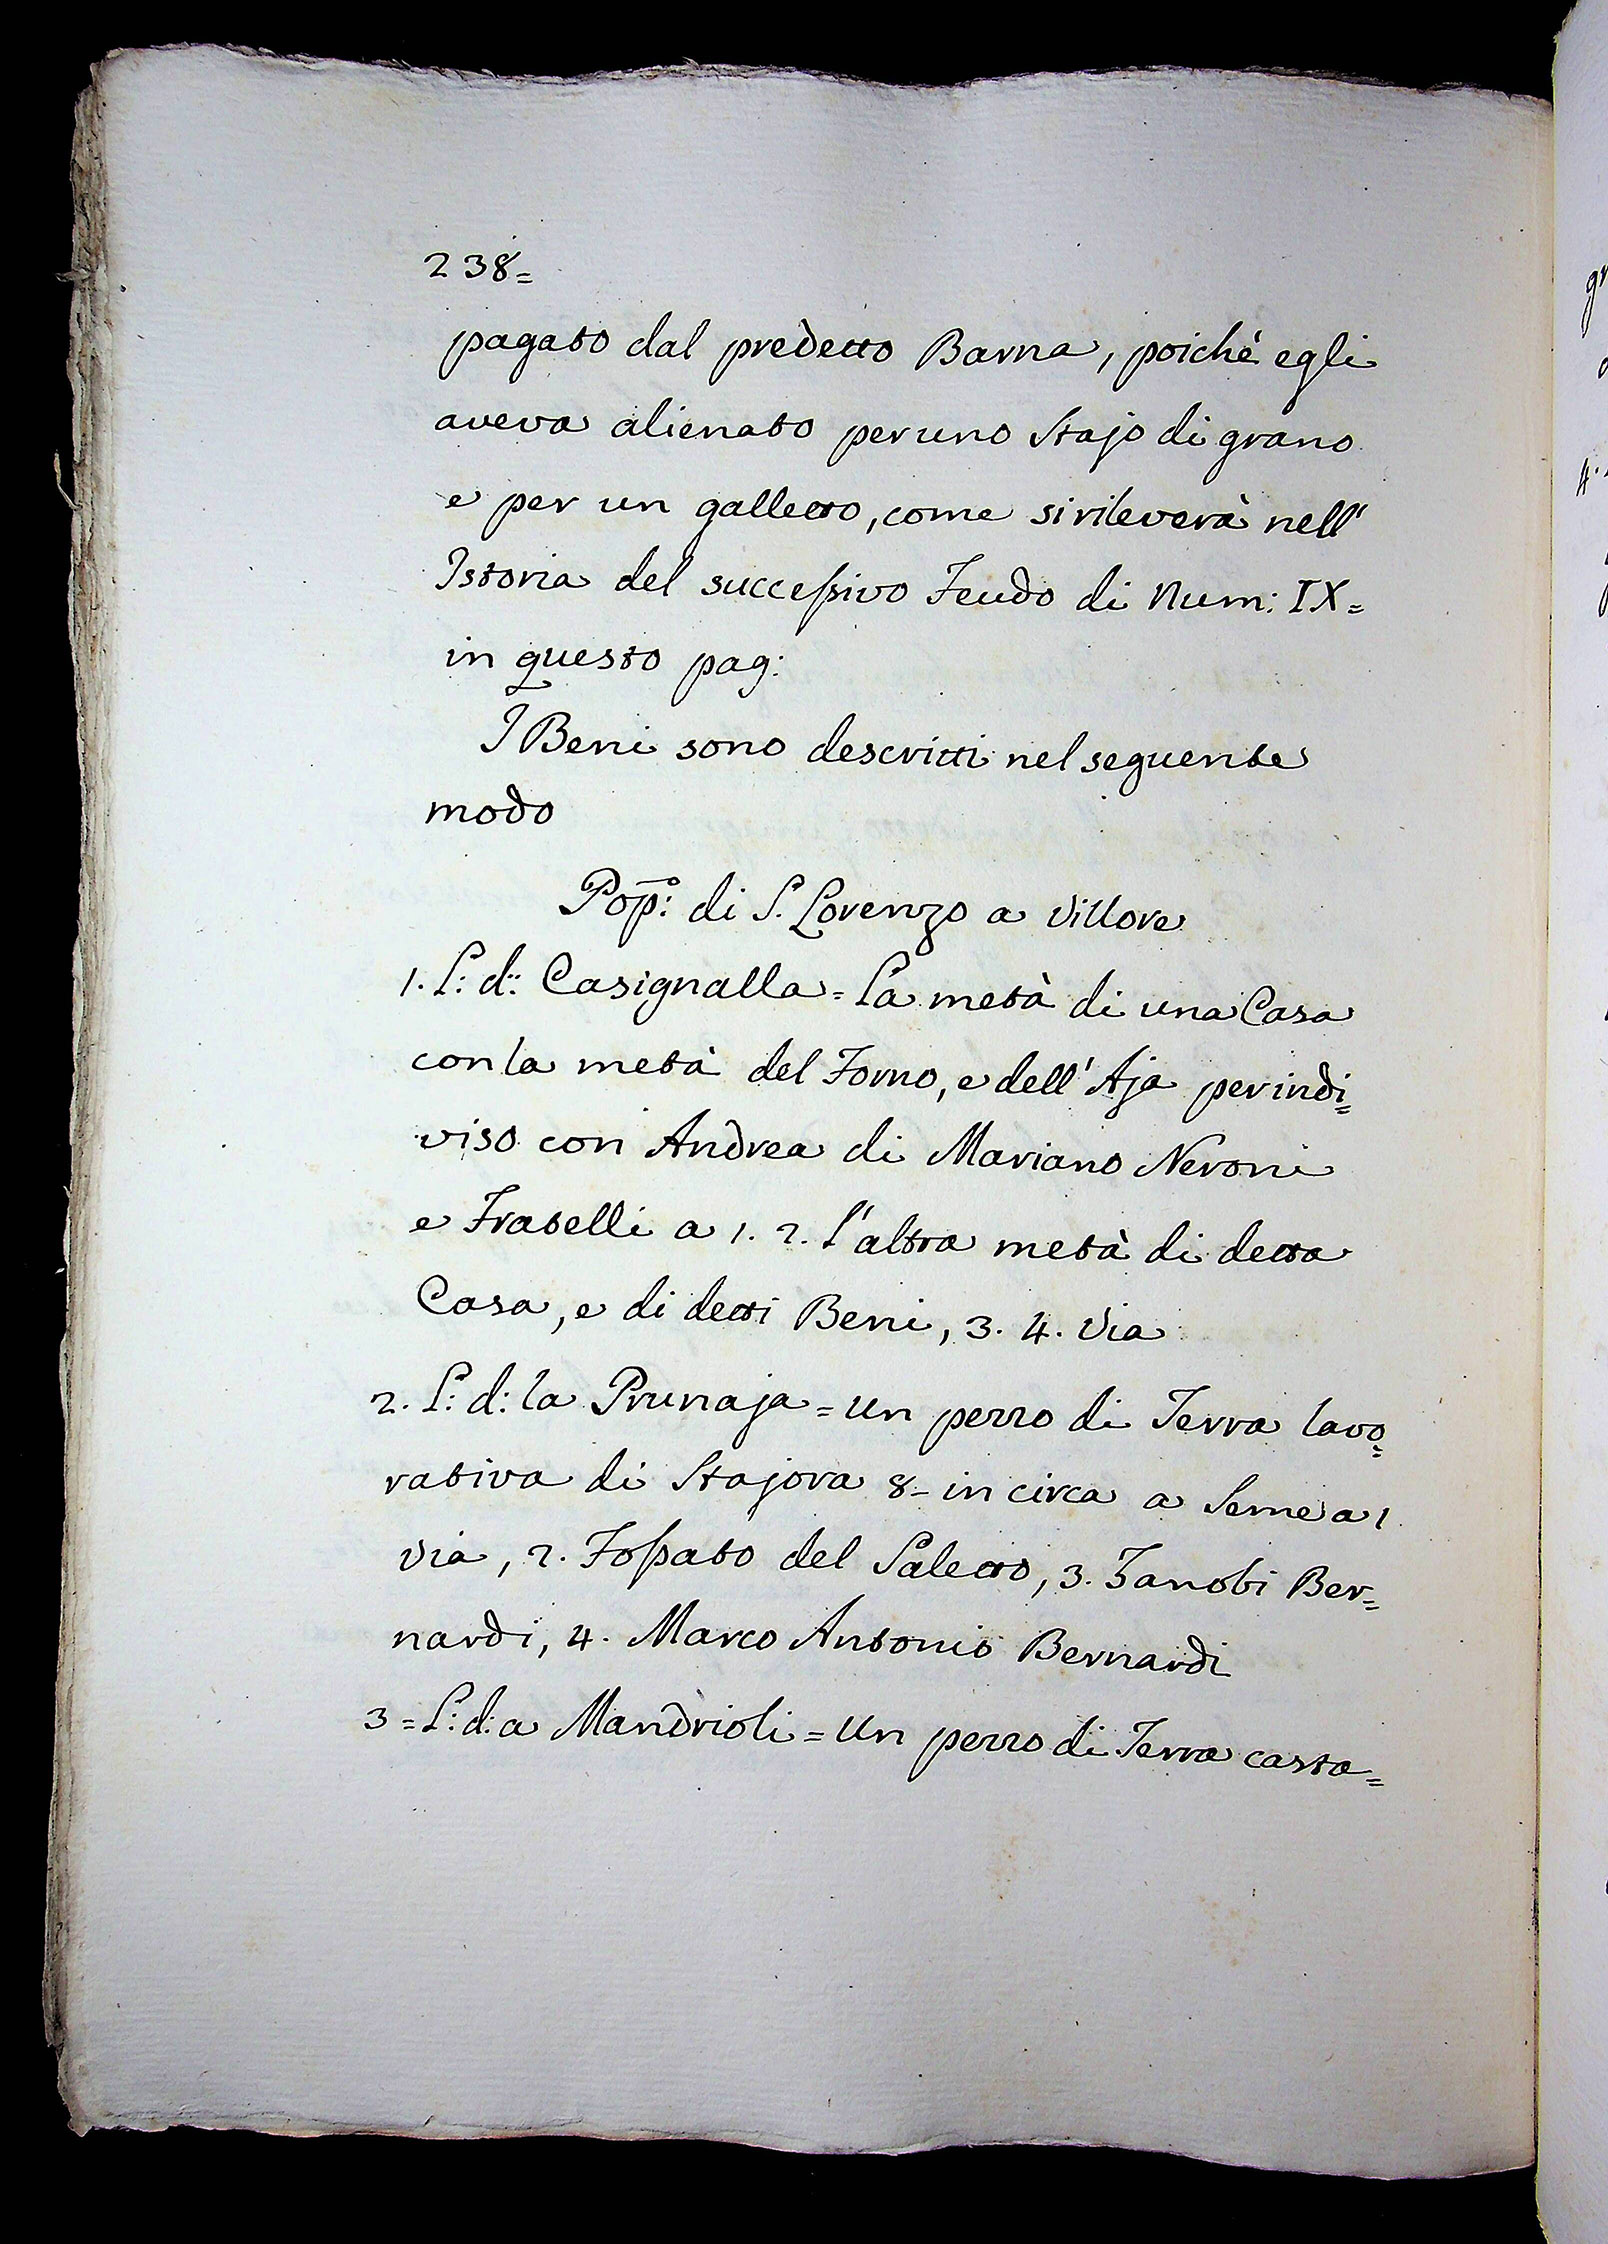 238=
pagato dal predetto Barna, poichè egli
aveva alienato per uno Stajo di grano
e per un galletto, come si rileverà nell'
Istoria del successivo Feudo di Num: IX=
in questo pag:
I Beni sono descritti nel seguente
modo
Pop̄:º di S. Lorenzo a Villore
1. L: d: Casignalla = La metà di una Casa
con la metà del Forno, e dell' Aja per indi=
viso con Andrea di Mariano Neroni
e Fratelli a 1. 2. l'altra metà di detta
Casa, e di detti Beni, 3. 4. Via
2. L: d: la Prunaja = Un pezzo di Terra lavo=
rativa di Stajora 8= in circa a Seme a 1
Via, 2. Fossato del Saletto, 3. Zanobi Ber=
nardi, 4. Marco Antonio Bernardi
3 = L: d: a Mandrioli = Un pezzo di Terra casta=